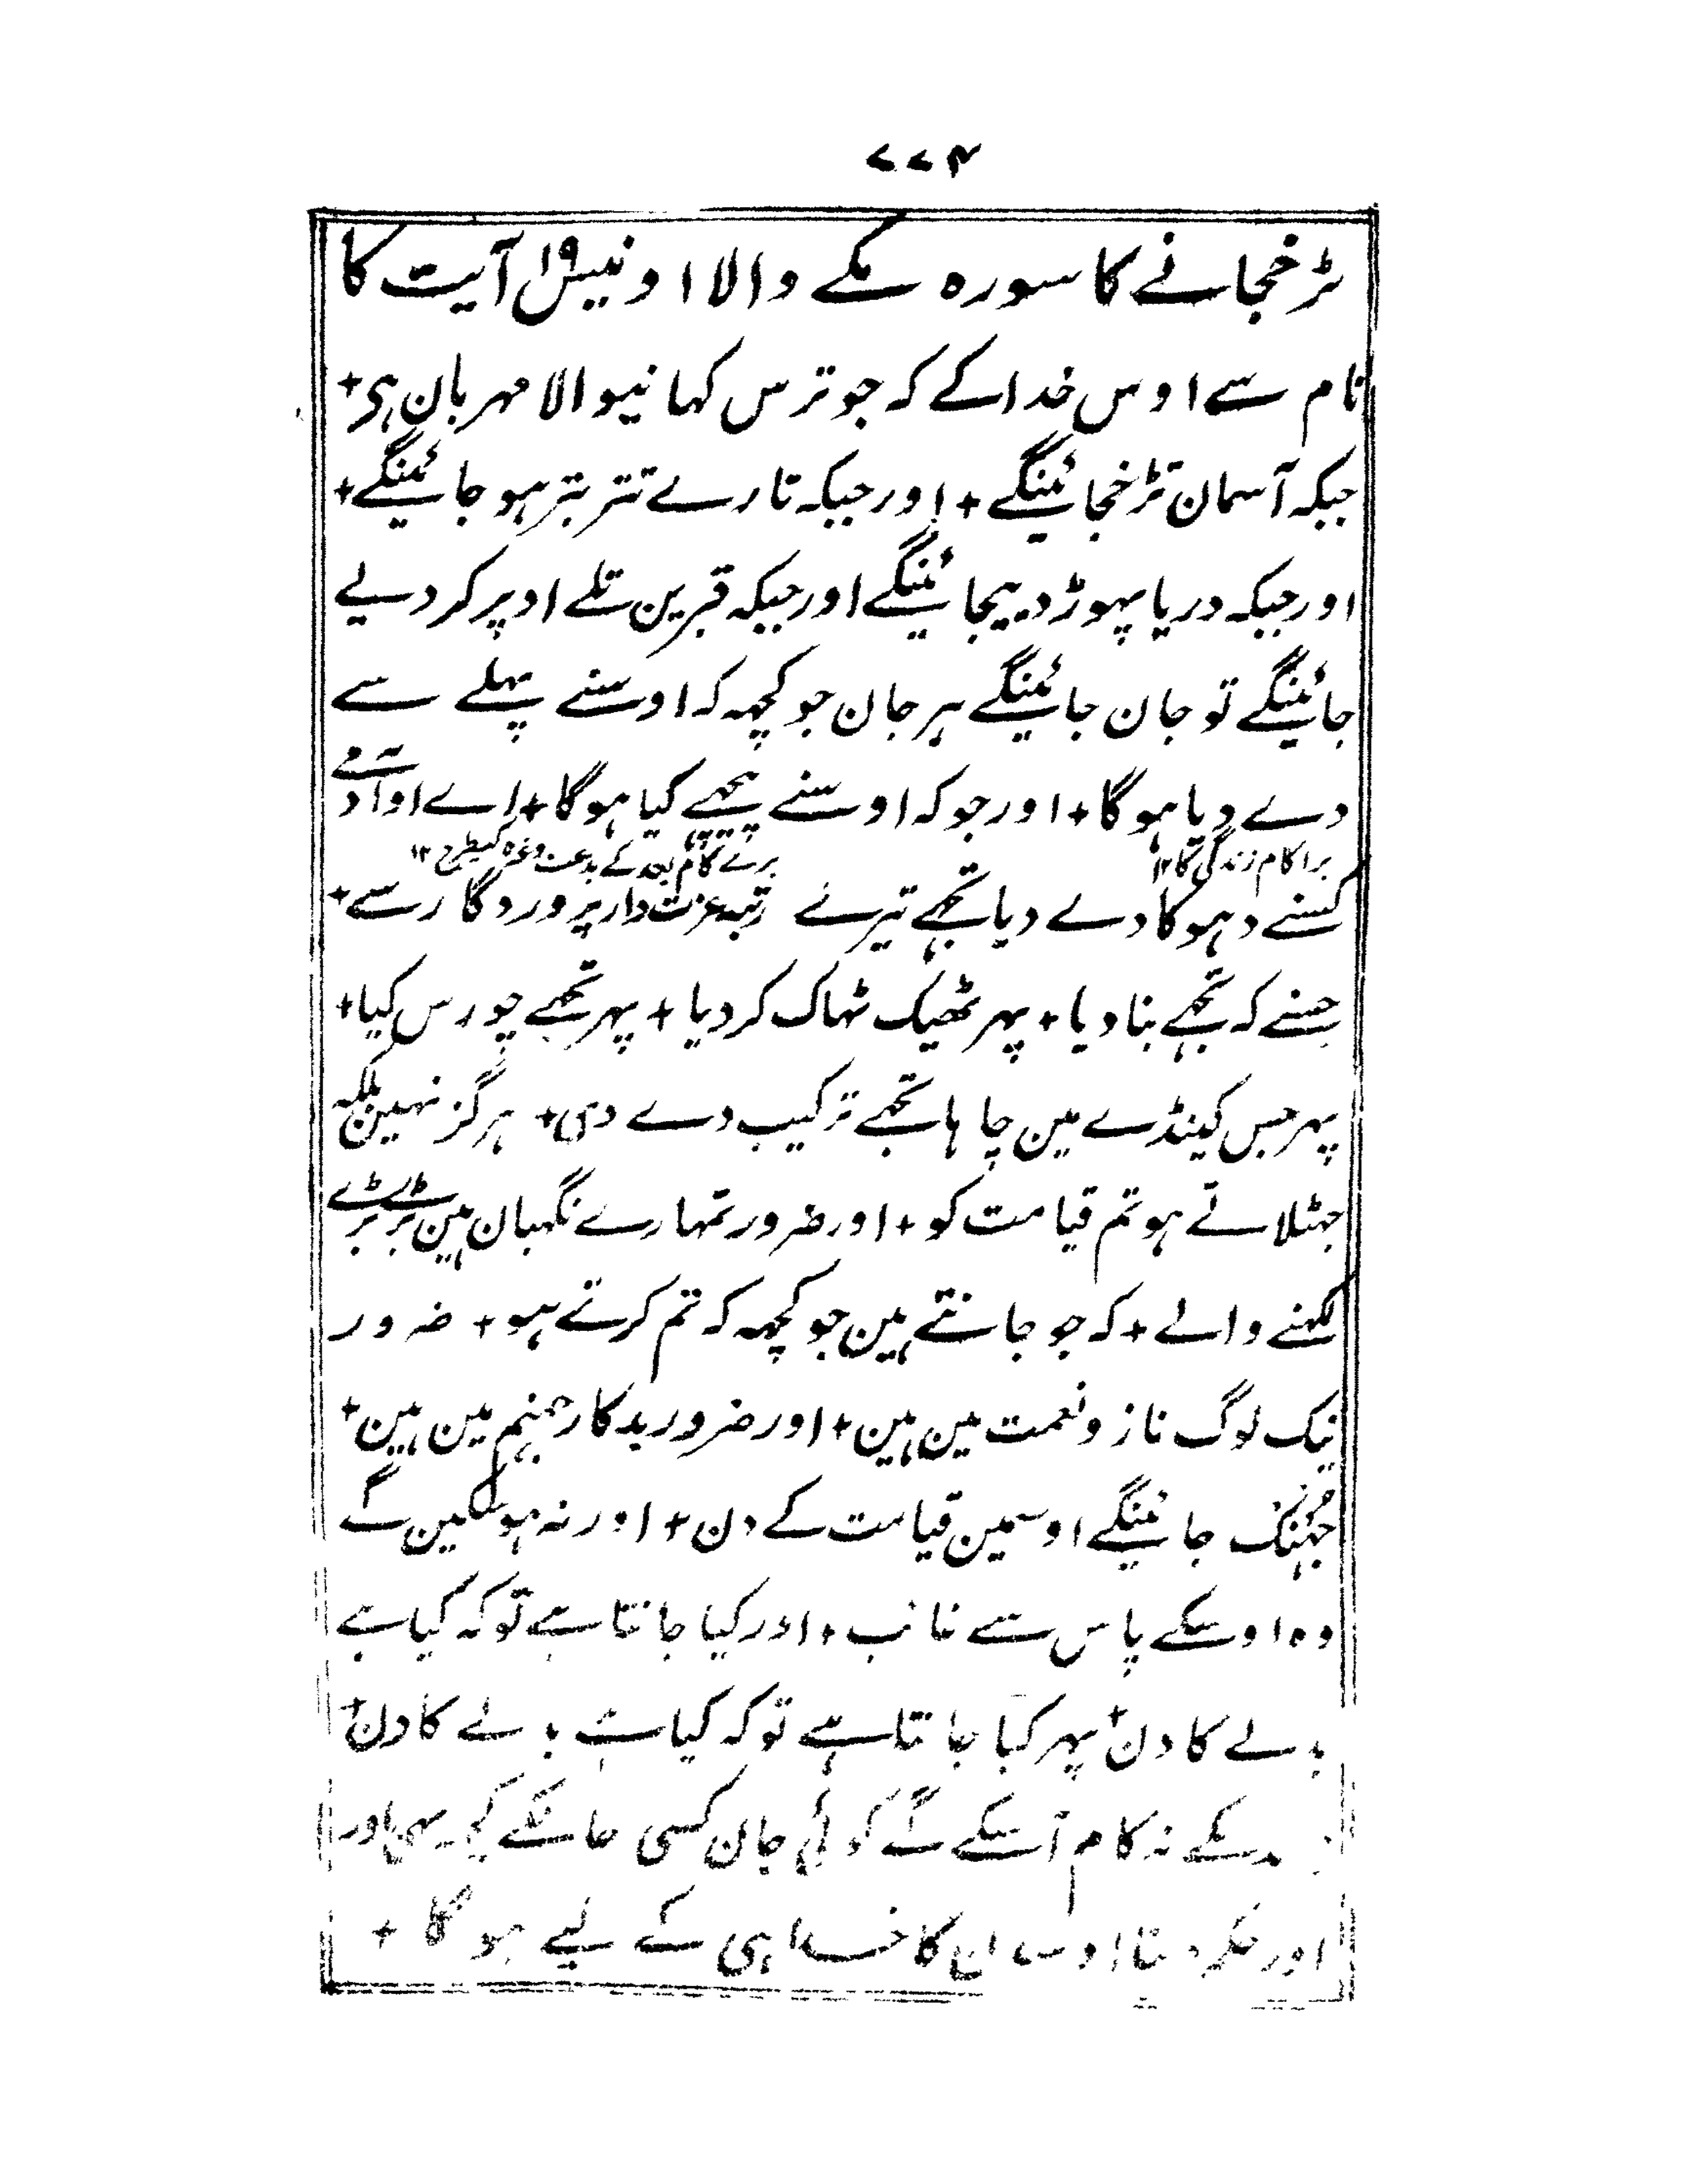 ۷۷۴
تڑخجانے کا سورہ مکے والا اونیس۱۹ آیت کا
نام سے اوس خدا کے کہ جو ترس کہانیوالا مہربان ہی+
جبکہ آسمان تڑخجائینگے + اور جبکہ تارے تتر بتر ہو جائینگے+
اور جبکہ دریا پہوڑ دییجائینگے اور جبکہ قبرین تلے اوپر کر دیے
جائینگے تو جان جائینگے ہر جان جو کچہہ کہ اوسنے پہلے سے
دے دیا ہو گا + اور جو کہ اوسنے پیچہے کیا ہو گا + اے او آدمی
برا کام زندگی کا۱۲ برے کام بعد کے بدعت وغیرہ کیطرح ۱۲
کسنے دہوکا دے دیا تجہے تیرے رتبہ عزت دار پروردگار سے+
جسنے کہ تجہے بنا دیا + پہر ٹھیک ٹہاک کر دیا + پہر تجھے چورس کیا+
پہر جس کینڈے مین چاہا تجہے ترکیب دے دی+ ہرگز نہین بلکہ
جہٹلاتے ہو تم قیامت کو + اور ضرور تمہارے نگہبان ہین بڑے بڑے
لکہنے والے + کہ جو جانتے ہین جو کچہہ کہ تم کرتے ہو + ضرور
نیک لوگ ناز و نعمت مین ہین + اور ضرور بدکار جہنم مین ہین+
جہنک جائینگے اوسمین قیامت کے دن + اور نہ ہو سکین گے
وہ اوسکے پاس سے غائب + اور کیا جانتا ہے تو کہ کیا ہے
بدلے کا دن + پہر کیا جانتا ہے تو کہ کیا ہے بدلے کا دن+
نہ کام آ سکے گے کوئی جان کسی جانکے کچہہ بھی اور
اور حکم دینا اوس دن کا خدا ہی کے لیے ہو گا +